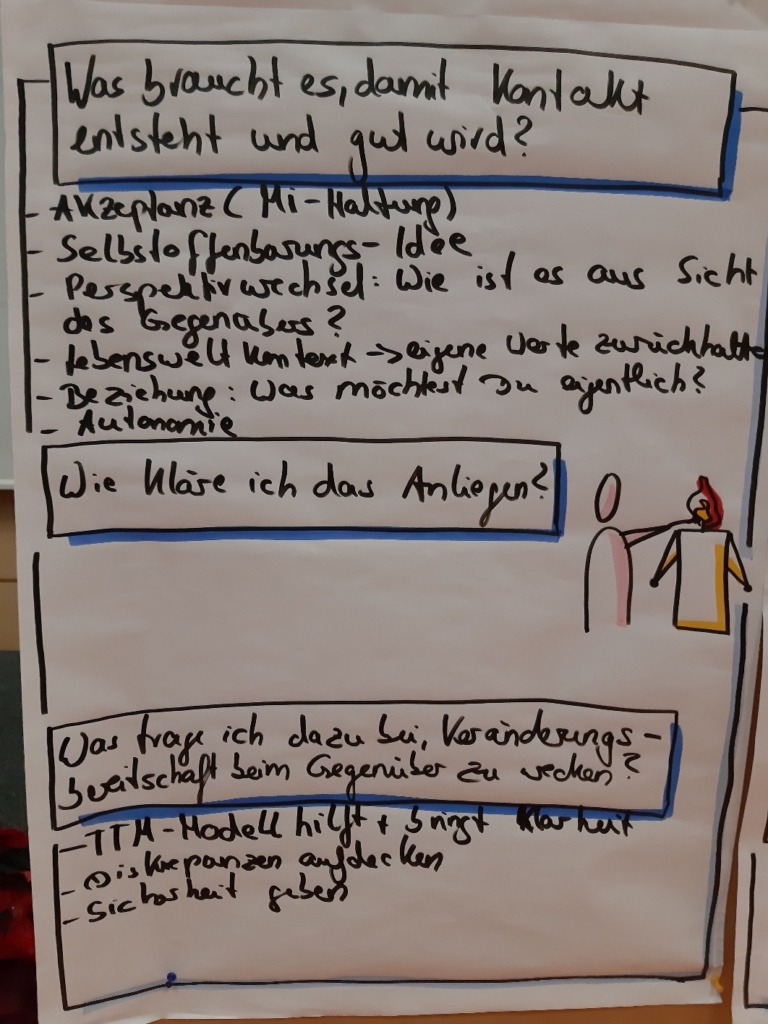 Was braucht es, damit Kontakt
entsteht und gut wird?
- Akzeptanz (Mi-Haltung)
- Selbstoffenbarungs-Idee
- Perspektivwechsel: Wie ist es aus Sicht
des Gegenübers?
- Lebenswelt Kontext -> eigene Werte zurückhalte
- Beziehung: Was möchtest Du eigentlich?
- Autonomie
Wie kläre ich das Anliegen?
Was trage ich dazu bei, Veränderungs-
bereitschaft beim Gegenüber zu wecken?
- TTM-Modell hilft + bringt Klarheit
- Diskrepanzen aufdecken
- Sicherheit geben